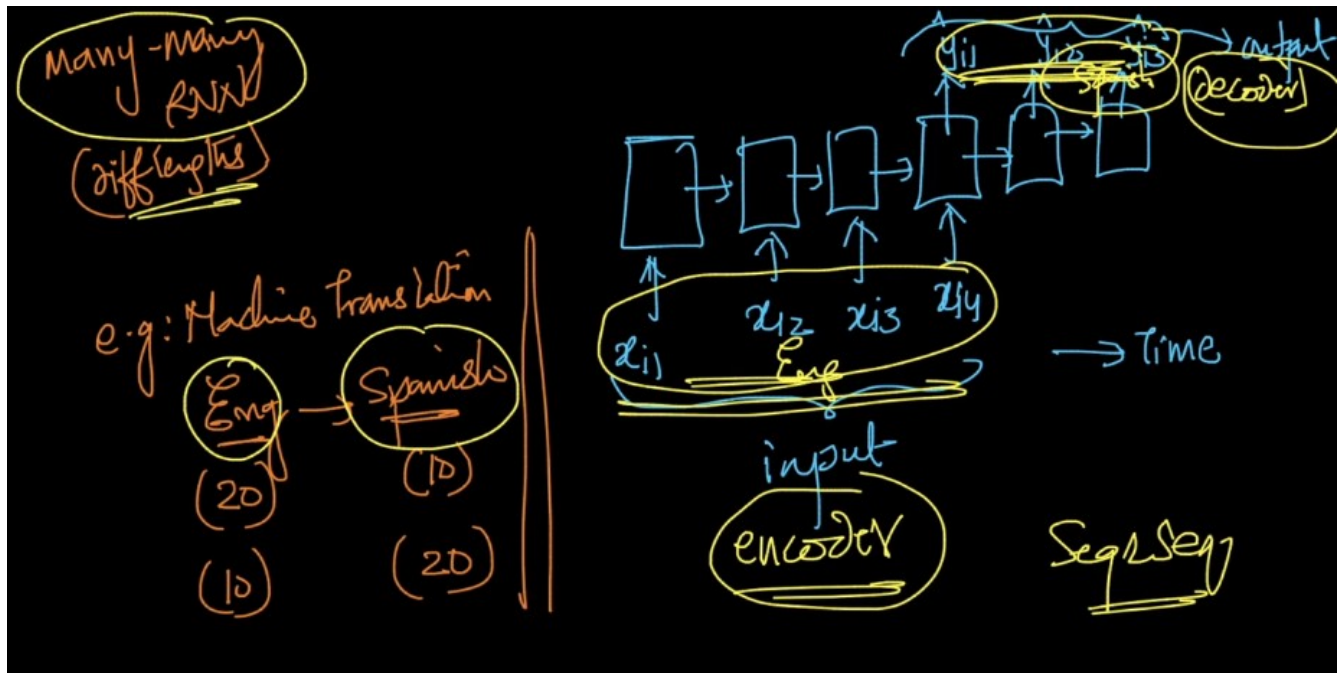 Many-Many
RNN
(diff lengths)
e.g: Machine Translation
Eng → Spanish
(20) (10)
(10) (20)
yi1 yi2 yi3 → output
(decoder)
xi1 xi2 xi3 xi4
Eng
→ Time
input
encoder
Seq2Seq